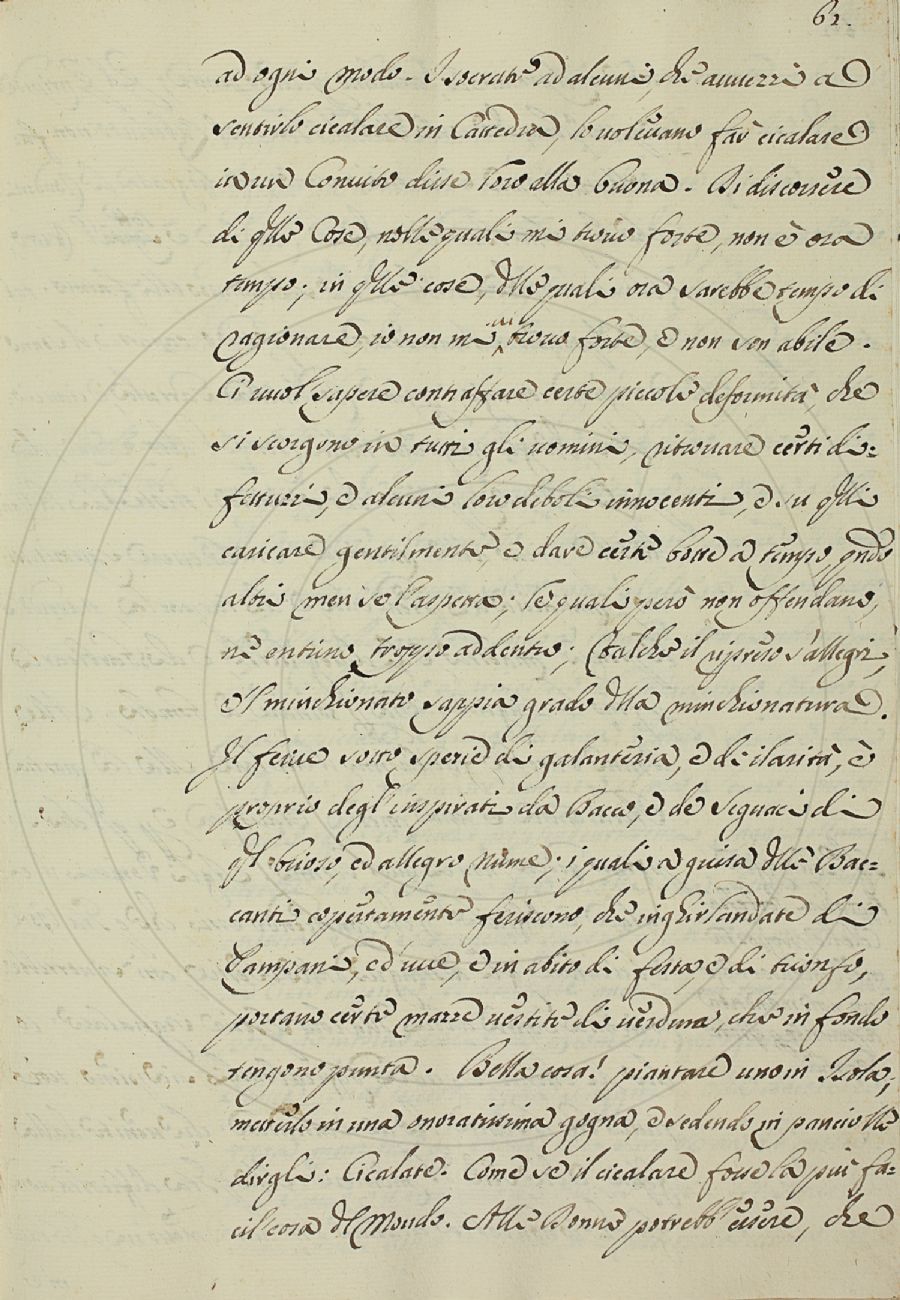 62.
ad ogni modo. Isocrate ad alcuni, che auuezzi a
sentirlo cicalare in Cattedra, lo uoleuano far cicalare
in un Conuito disse loro alla buona. Di discorrere
di qlle Cose, nelle quali mi truouo forte, non è ora
tempo; in qlle cose, dlle quali ora sarebbe tempo di
ragionare, io non mi ui truouo forte, e non son abile.
Ci uuol sapere contraffare certe piccole deformità, che
si scorgono in tutti gli uomini, ritrouare certi di=
fettuzzi, e alcuni loro deboli innocenti, e su qlli
caricare gentilmente, e dare certe botte a tempo, qndo
altri men se l'aspetta; le quali però non offendano,
nè entrino troppo addentro; talche il ripreso s'allegri,
e 'l minchionato sappia grado dlla minchionatura.
Il ferire sotto spezie di galanteria, e di ilarità, è
proprio degl'inspirati da Bacco, e de seguaci di
ql brioso, ed allegro nume; i quali a guisa dlle Bac=
canti copertamente feriscono, che inghirlandate di
Pampani, ed uue, e in abito di festa, e di trionfo,
portano certe mazze uestite di uerdura, che in fondo
tengono punta. Bella cosa! piantare uno in Isola,
metterlo in una onoratissima gogna, e sedendo in panciolle
dirgli: Cicalate. Come se il cicalare fosse la più fa=
cil cosa dl Mondo. Alle Donne potrebb' essere, che